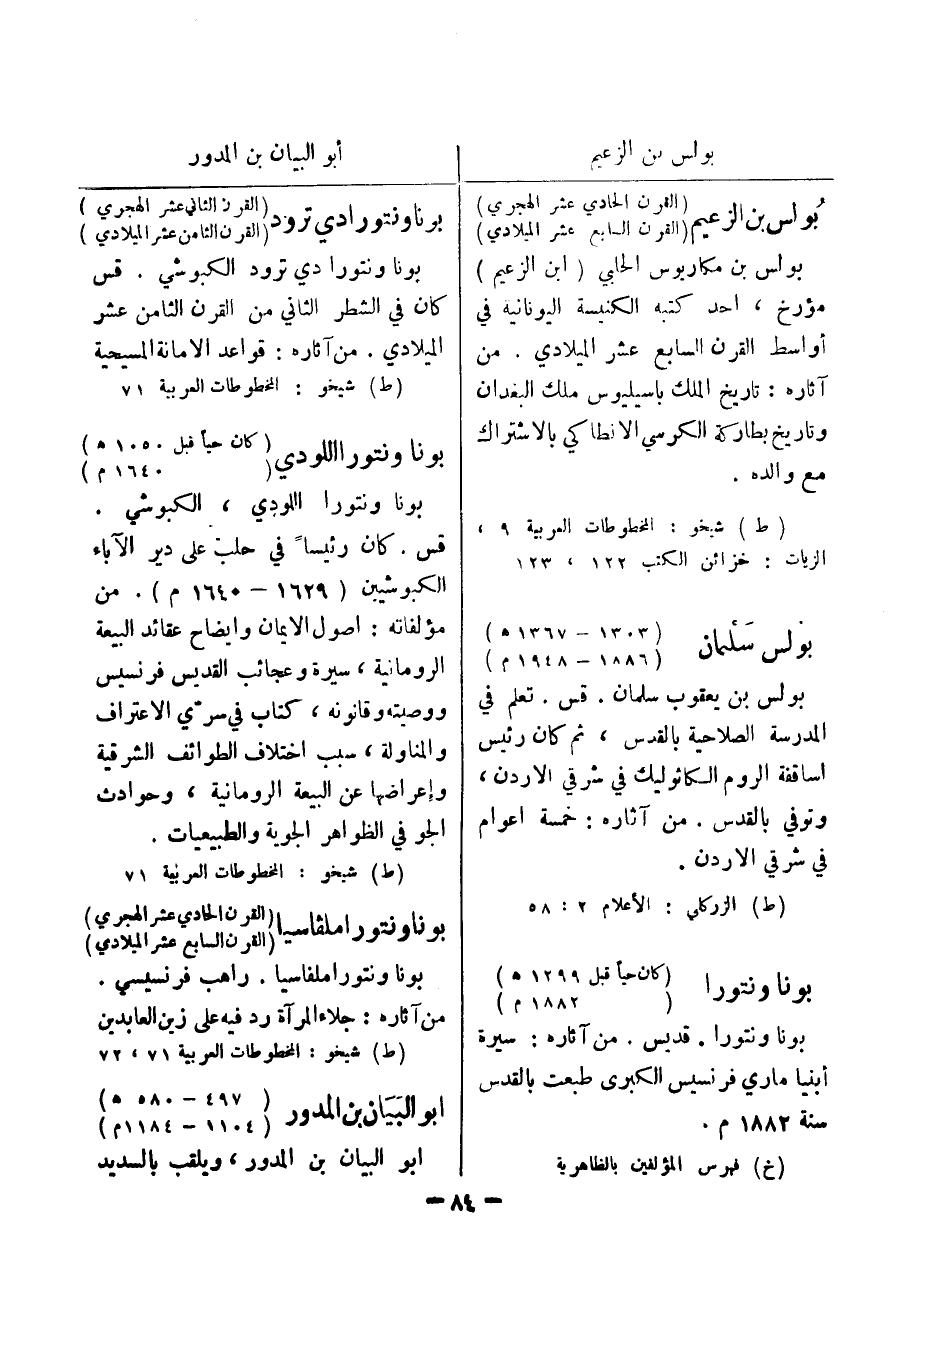 بولس بن الزعيم
أبو البيان بن المدور
بُولس بن الزعيم (القرن الحادي عشر الهجري)
(القرن السابع عشر الميلادي)
بولس بن مكاريوس الحلبي ( ابن الزعيم )
مؤرخ ، احد كتبه الكنيسة اليونانية في
أواسط القرن السابع عشر الميلادي . من
آثاره : تاريخ الملك باسيليوس ملك البغدان
وتاريخ بطاركة الكرسي الانطاكي بالاشتراك
مع والده .
( ط ) شيخو : المخطوطات العربية ٩ ،
الزيات : خزائن الكتب ١٢٢ ، ١٢٣
بولس سَلْمان (١٣٠٣ – ١٣٦٧ ه )
(١٨٨٦ – ١٩٤٨ م )
بولس بن يعقوب سلمان . قس . تعلم في
المدرسة الصلاحية بالقدس ، ثم كان رئيس
اساقفة الروم الكاثوليك في شرقي الاردن ،
وتوفي بالقدس . من آثاره : خمسة اعوام
في شرقي الاردن .
(ط) الزركلي : الأعلام ٢ : ٥٨
بونا ونتورا (كان حياً قبل ١٢٩٩ ه )
( ١٨٨٢ م )
بونا ونتورا . قديس . من آثاره : سيرة
أبنيا ماري فرنسيس الكبرى طبعت بالقدس
سنة ١٨٨٢ م .
(خ) فهرس المؤلفين بالظاهرية
بونا ونتورا دي ترود (القرن الثاني عشر الهجري )
(القرن الثامن عشر الميلادي )
بونا ونتورا دي ترود الكبوشي . قس
كان في الشطر الثاني من القرن الثامن عشر
الميلادي . من آثاره : قواعد الامانة المسيحية
(ط) شيخو : المخطوطات العربية ٧١
بونا ونتورا اللودي ( كان حياً قبل ١٠٥٠ ه )
( ١٦٤٠ م )
بونا ونتورا اللودي ، الكبوشي .
قس . كان رئيساً في حلب على دير الآباء
الكبوشيين ( ١٦٢٩ – ١٦٤٠ م ) . من
مؤلفاته : اصول الايمان وايضاح عقائد البيعة
الرومانية ، سيرة وعجائب القديس فرنسيس
ووصيته وقانونه ، كتاب في سرّي الاعتراف
والمناولة ، سبب اختلاف الطوائف الشرقية
وإعراضها عن البيعة الرومانية ، وحوادث
الجو في الظواهر الجوية والطبيعيات .
(ط) شيخو : المخطوطات العربية ٧١
بونا ونتورا ملفاسيا (القرن الحادي عشر الهجري )
(القرن السابع عشر الميلادي )
بونا ونتورا ملفاسيا . راهب فرنسيسي .
من آثاره : جلاء المرآة رد فيه على زين العابدين
(ط) شيخو : المخطوطات العربية ٧١ ، ٧٢
ابو البَيَان بن المدور ( ٤٩٧ – ٥٨٠ ه )
( ١١٠٤ – ١١٨٤ م )
ابو البيان بن المدور ، ويلقب بالسديد
– ٨٤ –